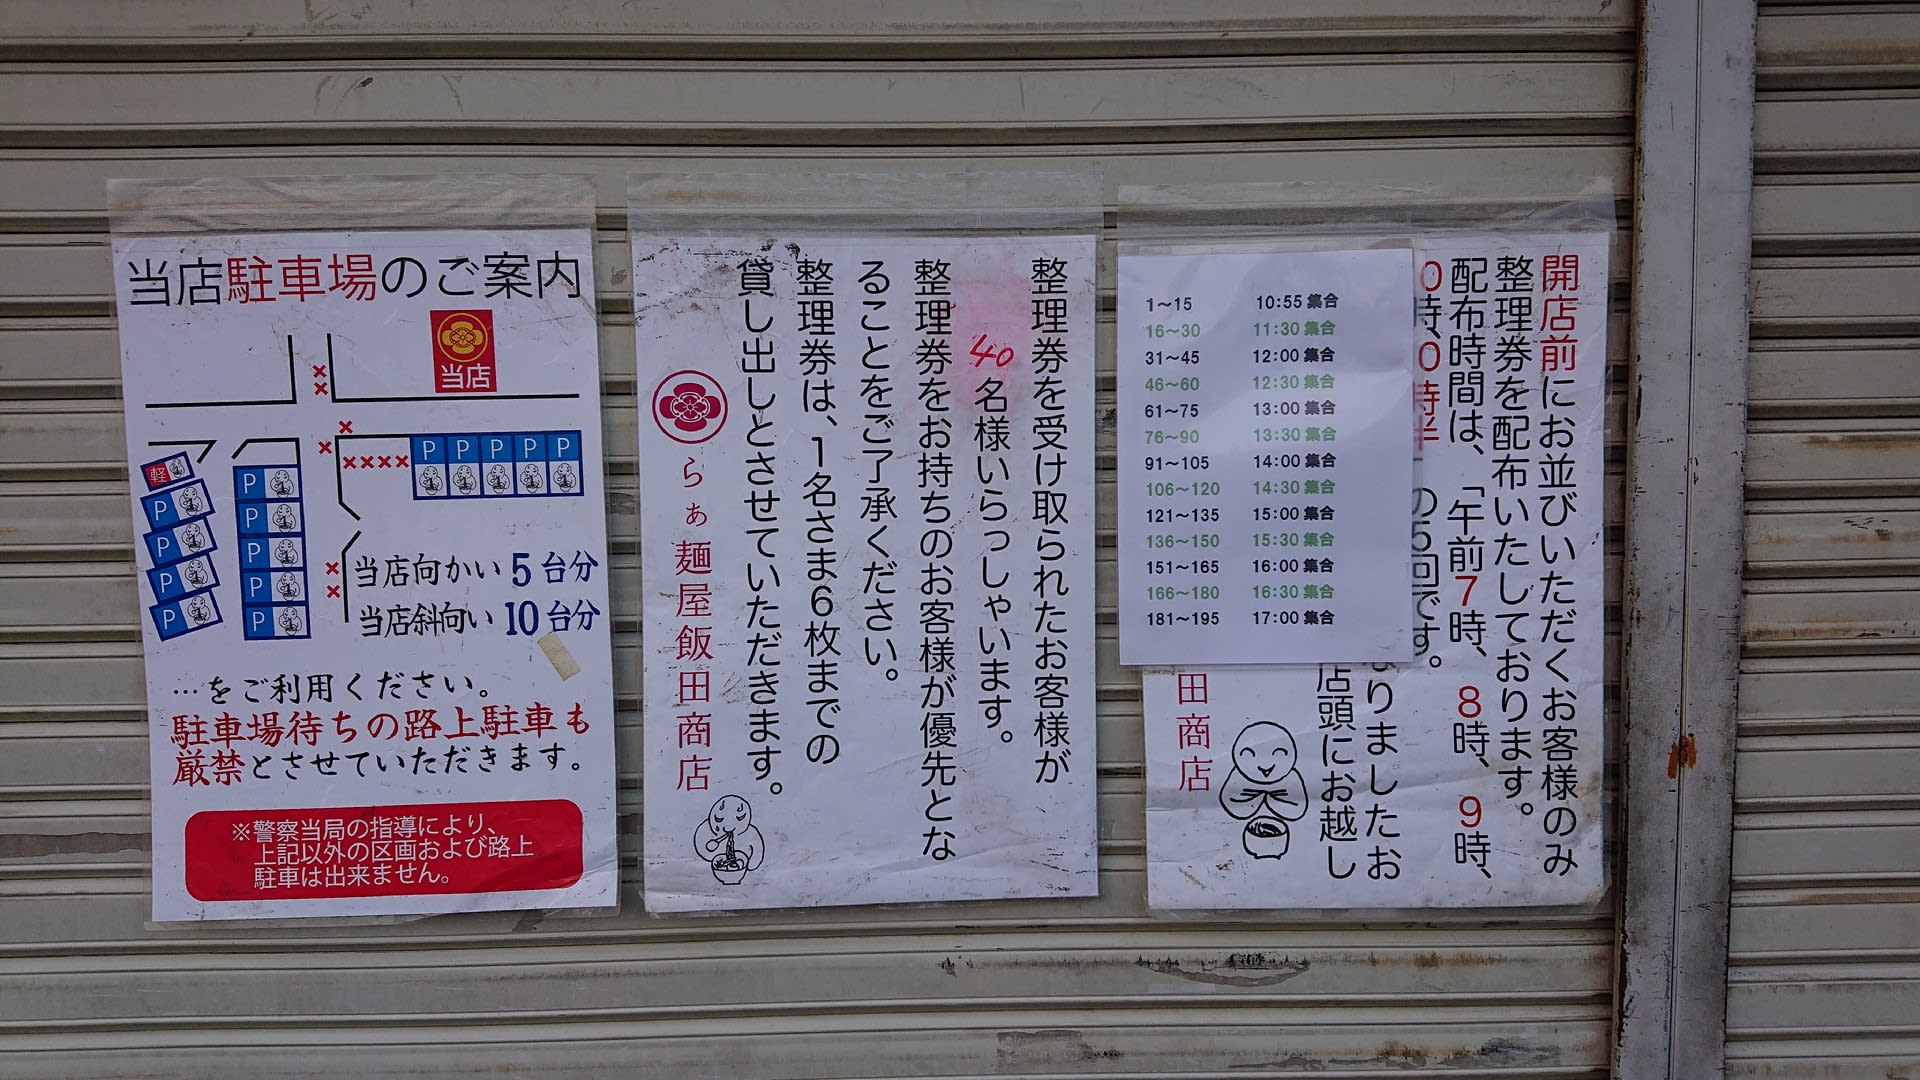 当店駐車場のご案内
当店
軽
P
P
P
P
P
P
P
P
P
P P P P P
当店向かい 5 台分
当店斜向い 10 台分
…をご利用ください。
駐車場待ちの路上駐車も
厳禁とさせていただきます。
※警察当局の指導により、
上記以外の区画および路上
駐車は出来ません。
整理券を受け取られたお客様が
40名様いらっしゃいます。
整理券をお持ちのお客様が優先とな
ることをご了承ください。
整理券は、1名さま6枚までの
貸し出しとさせていただきます。
らぁ麺屋飯田商店
1～15 10:55 集合
16～30 11:30 集合
31～45 12:00 集合
46～60 12:30 集合
61～75 13:00 集合
76～90 13:30 集合
91～105 14:00 集合
106～120 14:30 集合
121～135 15:00 集合
136～150 15:30 集合
151～165 16:00 集合
166～180 16:30 集合
181～195 17:00 集合
開店前にお並びいただくお客様のみ
整理券を配布いたしております。
配布時間は、「午前7時、8時、9時、
0時、0時半 の5回です。
なりましたお
店頭にお越し
田商店